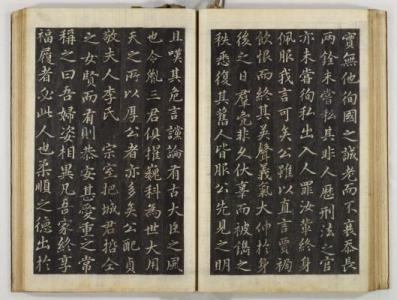 實無他徇國之誠老而不衰忝長
兩銓未嘗私其非人歷刑法之官
亦未嘗徇私出入人罪汝輩終身
佩服我言可矣公雖以直言賈禍
飲恨而終其英聲義氣大伸於身
後之日羣党非久伏辜而被譴之
秩悉復其舊人皆服公先見之明
且嘆其危言讜論有古大臣之風
也令胤三君俱擢魏科為世大用
天之所以厚公者亦多矣公配貞
敬夫人李氏 宗室把城君誠仝
之女賢而有則恭安甚愛重之常
稱之曰吾婦姿相異凡吾家終享
福履者必此人也柔順之德出於